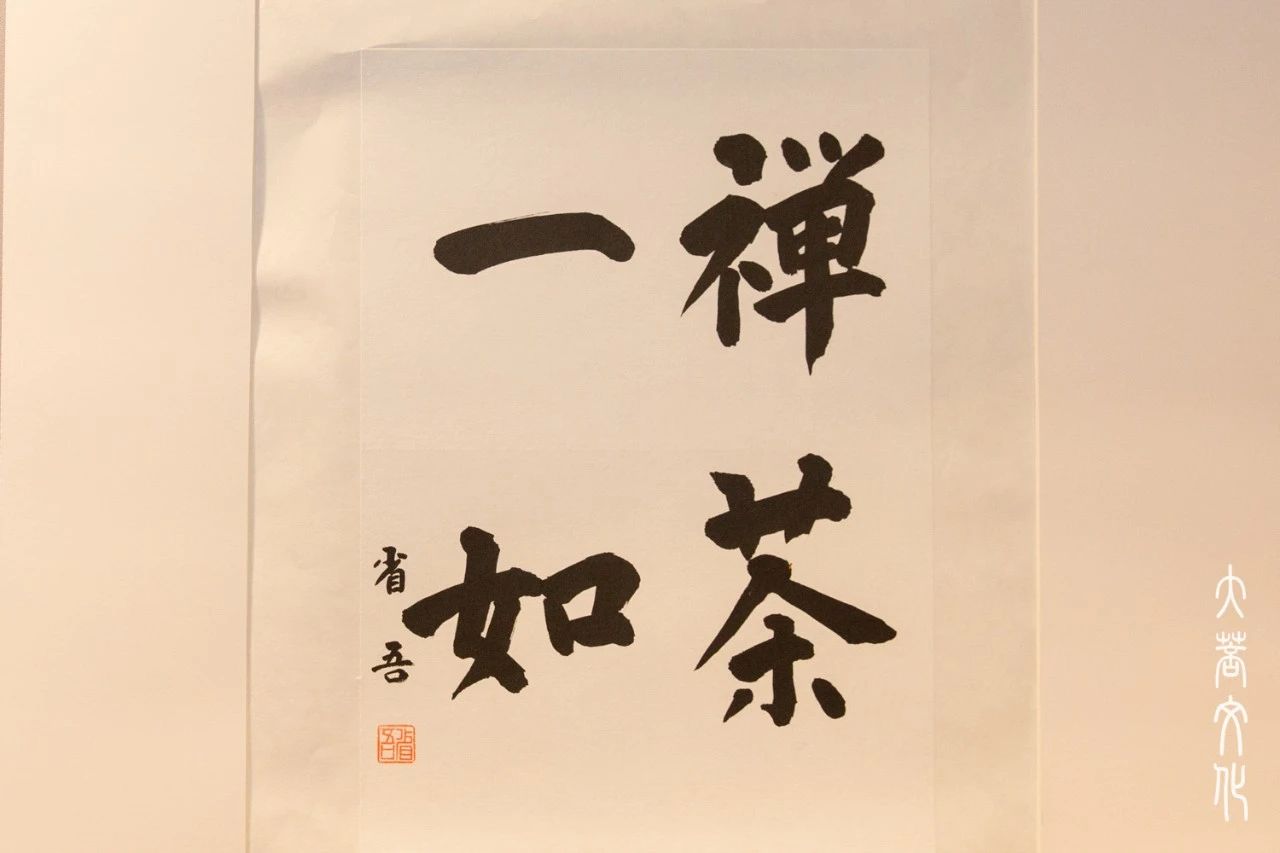 禅茶
一如
省吾
省吾
大菩文化